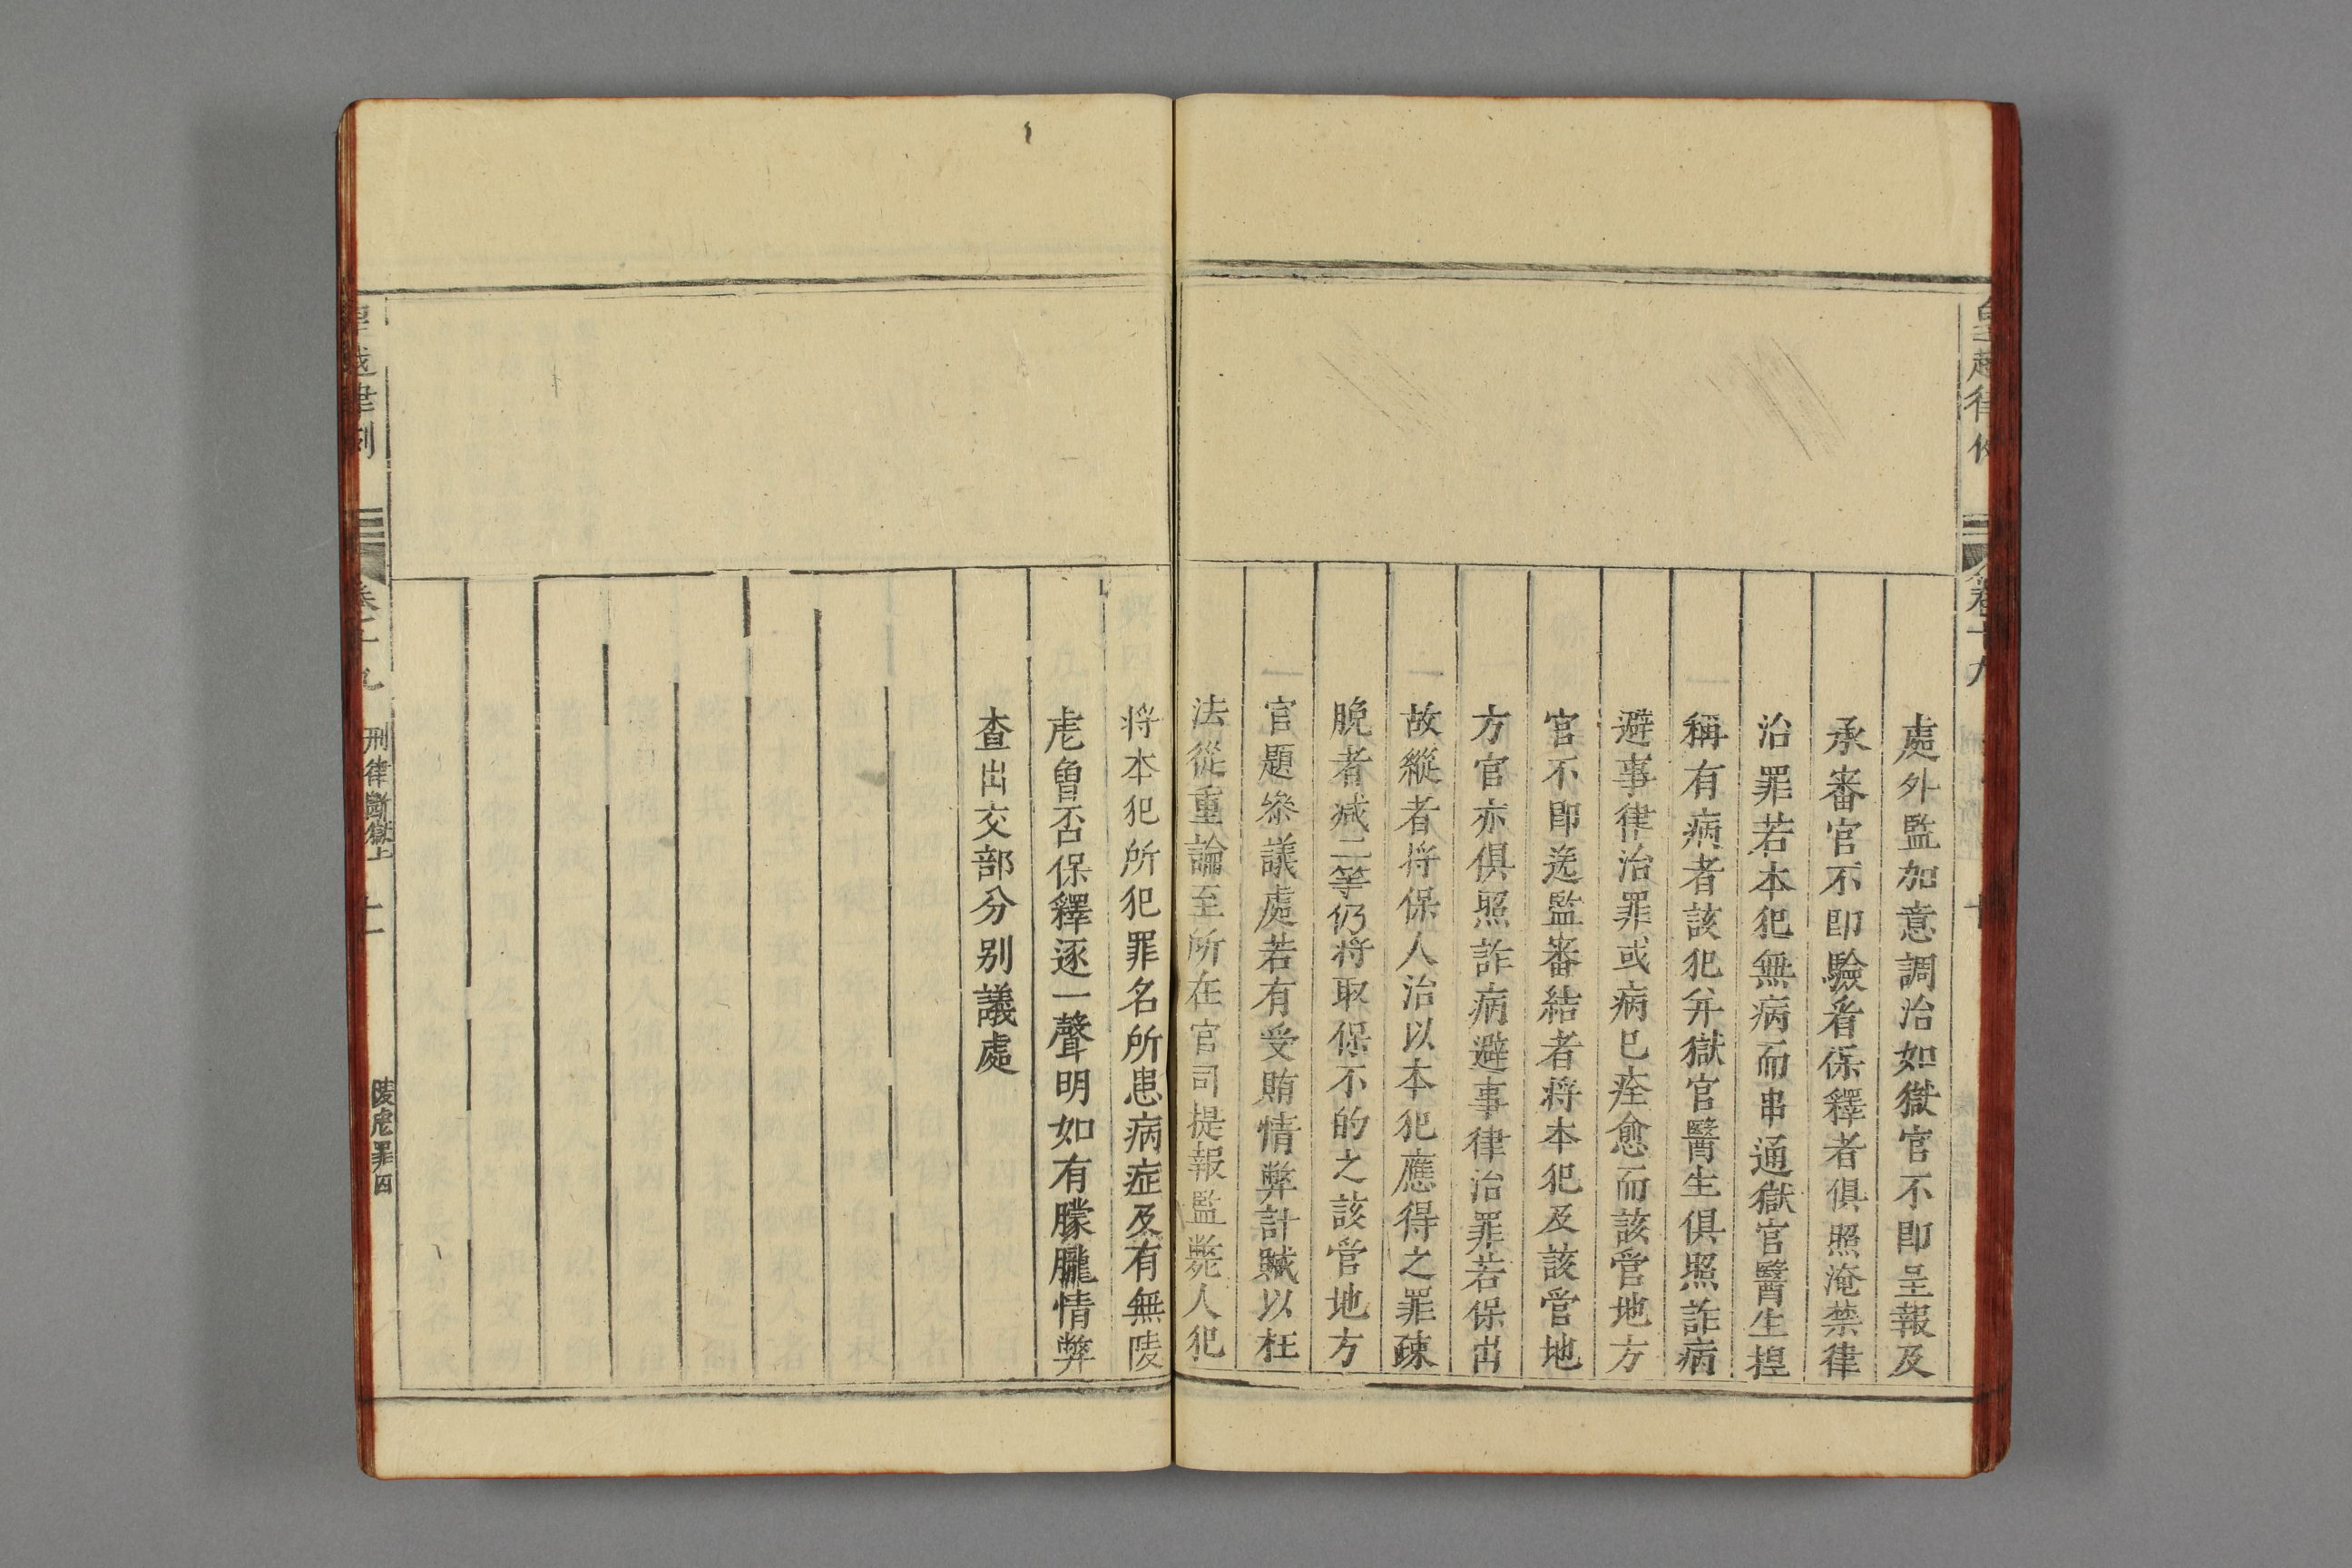 皇越律例
卷十九
處外監加意調治如獄官不即呈報及
承審官不即驗看保釋者俱照淹禁律
治罪若本犯無病而串通獄官醫生揑
稱有病者該犯并獄官醫生俱照詐病
避事律治罪或病已痊愈而該管地方
官不即送監審結者將本犯及該管地
方官亦俱照詐病避事律治罪若保出
故縱者將保人治以本犯應得之罪疎
脫者减二等仍將取保不的之該管地方
官題叅議處若有受賄情弊計贓以枉
法從重論至所在官司提報監斃人犯
將本犯所犯罪名所患病症及有無陵
虐曾否保釋逐一聲明如有朦朧情弊
查出交部分别議處
皇越律例
卷十九
刑律斷獄上
十一
陵虐罪囚